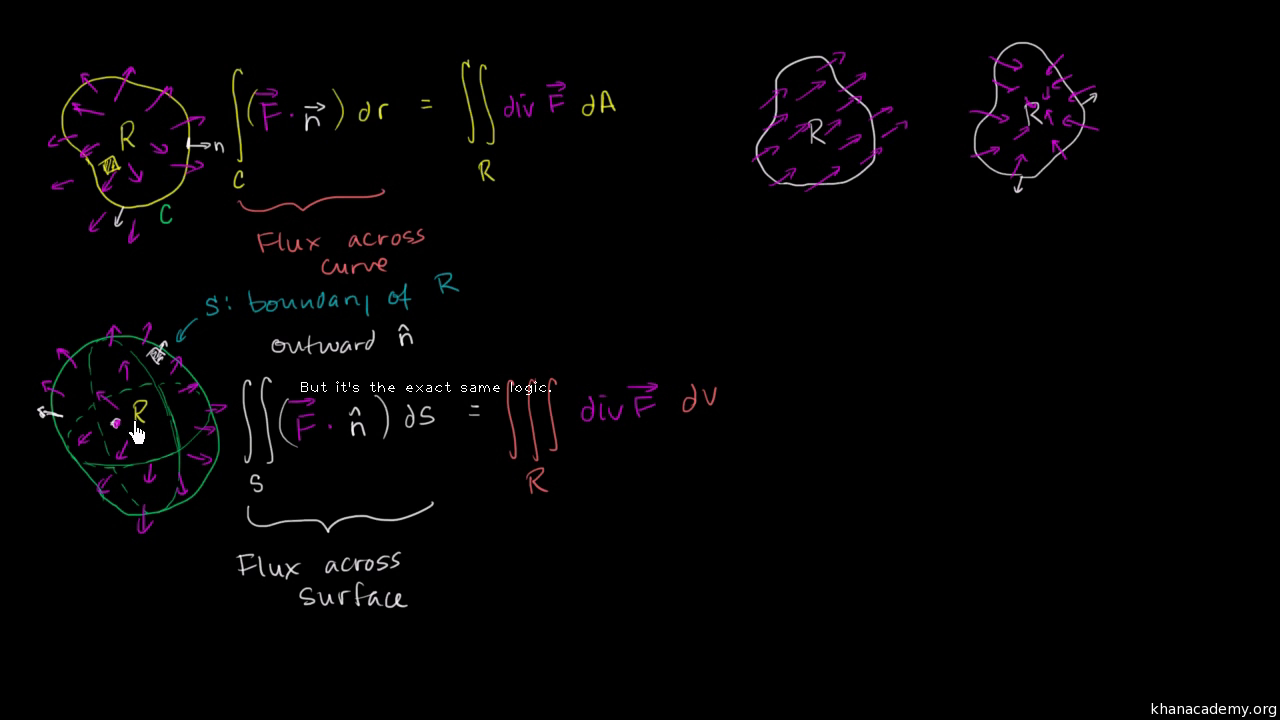 R
n
C
∫ (F⃗ · n⃗) dr = ∬ div F⃗ dA
C
R
Flux across
curve
R
R
S: boundary of R
outward n̂
But it's the exact same logic.
R
∬ (F⃗ · n̂) dS = ∭ div F⃗ dV
S
R
Flux across
surface
khanacademy.org